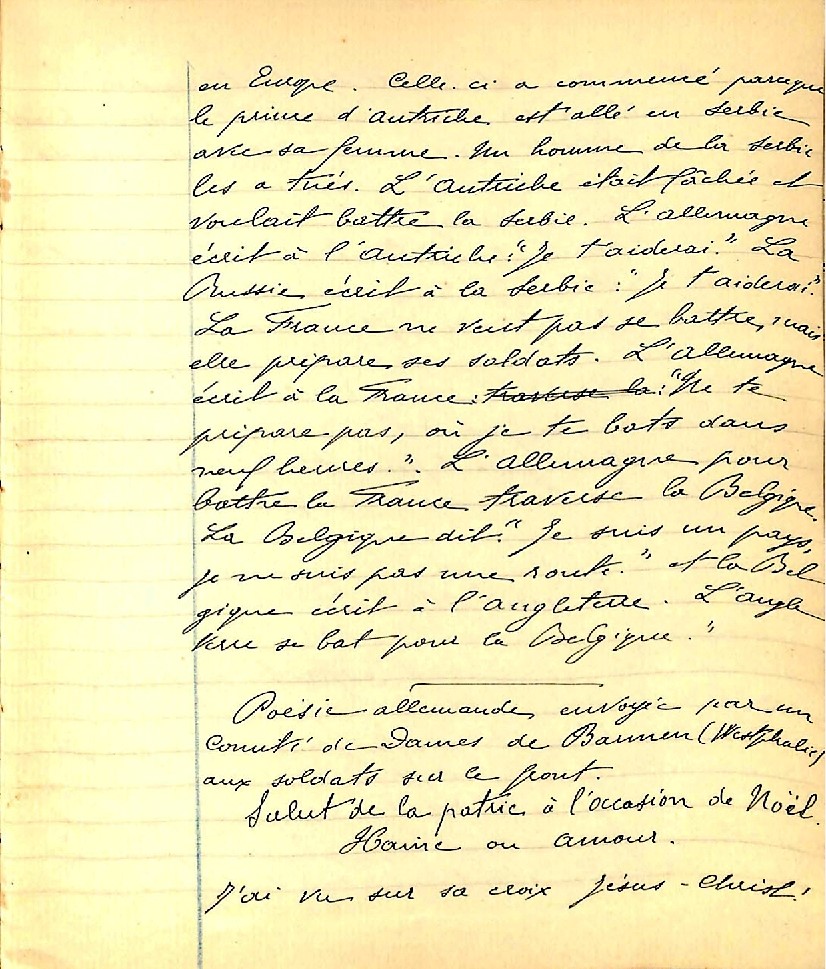 en Europe. Celle-ci a commencé parceque
le prince d'autriche est allé en Serbie
avec sa femme. Un homme de la Serbie
les a tués. L'autriche était fâchée et
voulait battre la Serbie. L'allemagne
écrit à l'autriche: "Je t'aiderai." La
Russie écrit à la Serbie: "Je t'aiderai".
La France ne veut pas se battre, mais
elle prépare ses soldats. L'allemagne
écrit à la France: traverse la: "Ne te
prépare pas, où je te bats dans
neuf heures.". L'allemagne pour
battre la France traverse la Belgique.
La Belgique dit: "Je suis un pays,
je ne suis pas une route." et la Bel
gique écrit à l'angleterre. L'angle
terre se bat pour la Belgique."
Poésie allemande, envoyée par un
Comité de Dames de Barmen (Westphalie)
aux soldats sur le front.
Salut de la patrie à l'occasion de Noël.
Haine ou amour.
J'ai vu sur sa croix Jésus-Christ!